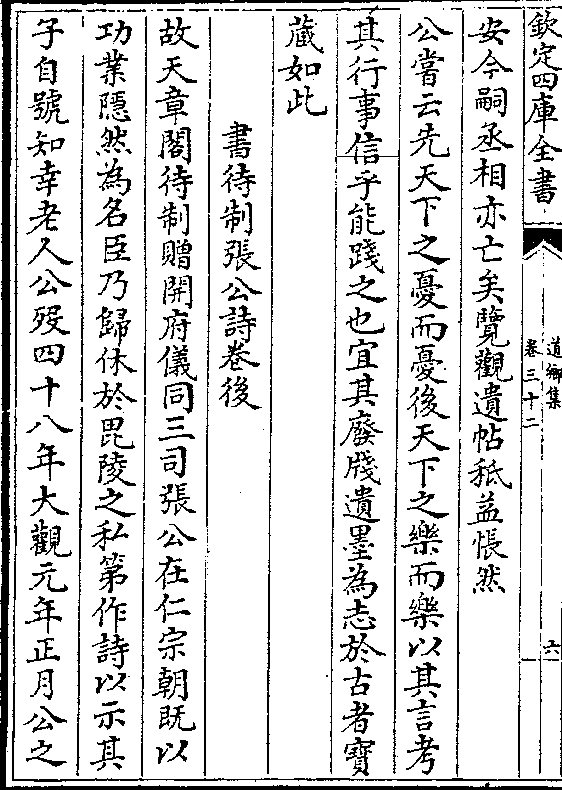 欽定四庫全書
道鄉集
卷三十二
六
安今嗣丞相亦亡矣覽觀遺帖秪益悵然
公嘗云先天下之憂而憂後天下之樂而樂以其言考
其行事信乎能踐之也宜其廢牋遺墨為志於古者寶
藏如此
書待制張公詩卷後
故天章閣待制贈開府儀同三司張公在仁宗朝既以
功業隱然為名臣乃歸休於毘陵之私第作詩以示其
子自號知幸老人公歿四十八年大觀元年正月公之